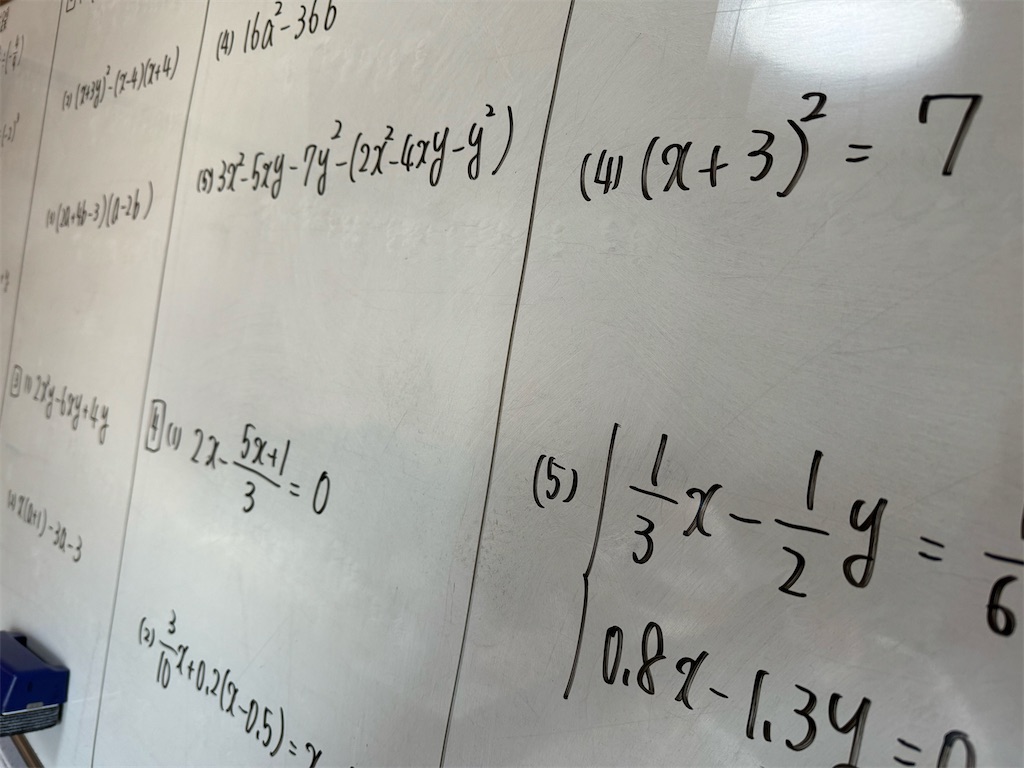 (3) (x+3y)²-(x-4)(x+4)
(2a+4b-3)(a-2b)
3 (1) 2x²y-6xy+4y
x(a+1)-3a-3
(4) 16a²-36b
(5) 3x²-5xy-7y²-(2x²-4xy-y²)
4 (1) 2x-\frac{5x+1}{3}=0
(2) \frac{3}{10}x+0.2(x-0.5)=x
(4) (x+3)²=7
(5) { \frac{1}{3}x-\frac{1}{2}y=\frac{1}{6}
0.8x-1.3y=0